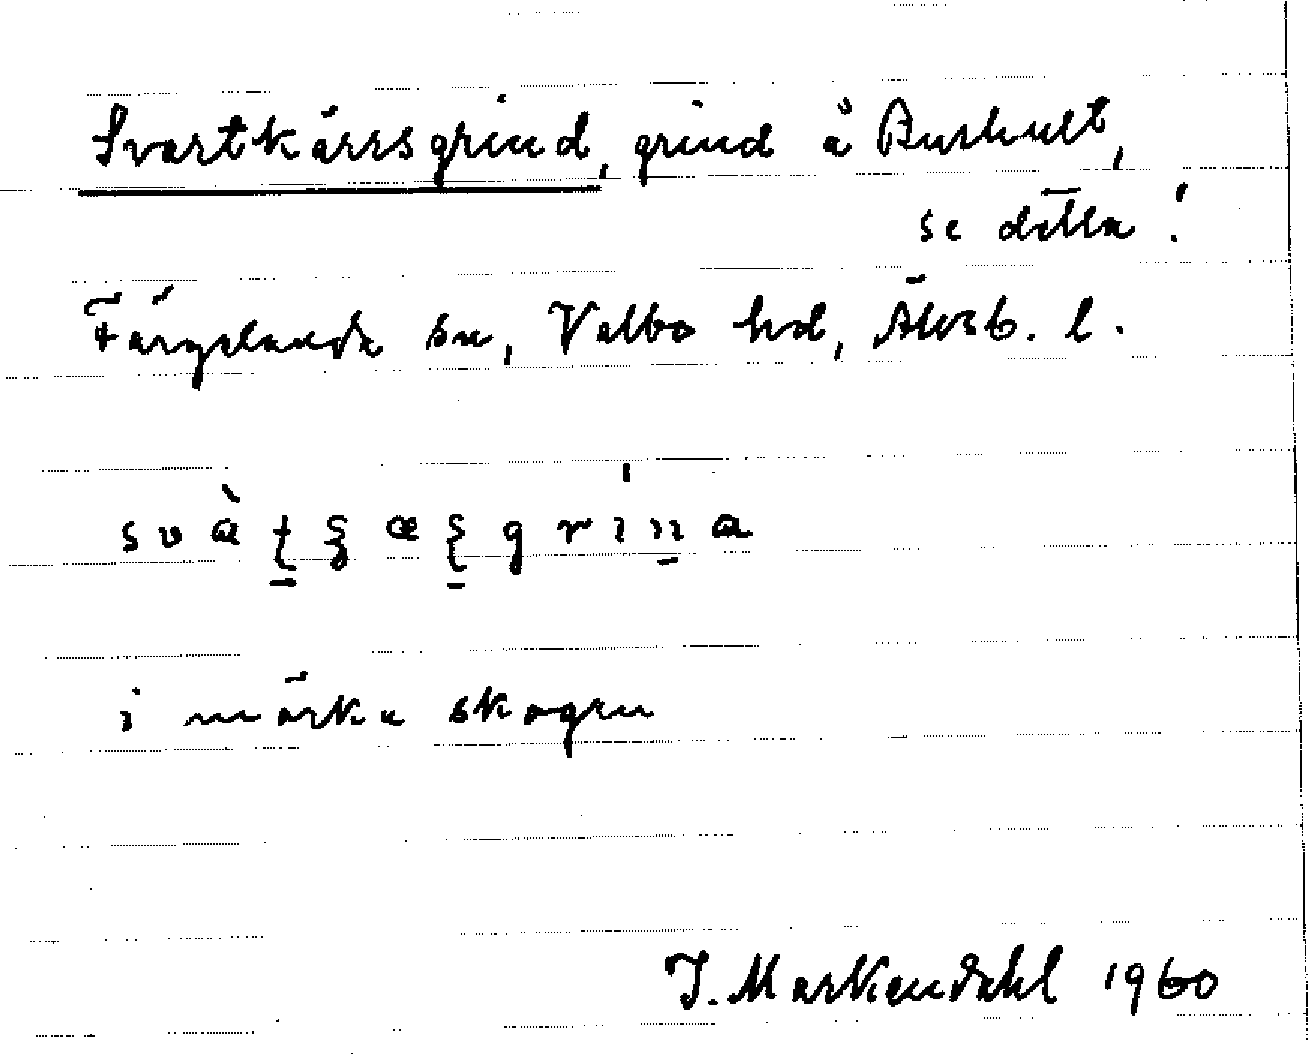 Svartkärrsgrind, grind å Burhult,
se detta!
Färgelanda sn, Valbo hd, Älvsb. l.
i mörka skogen
J. Markendahl 1960